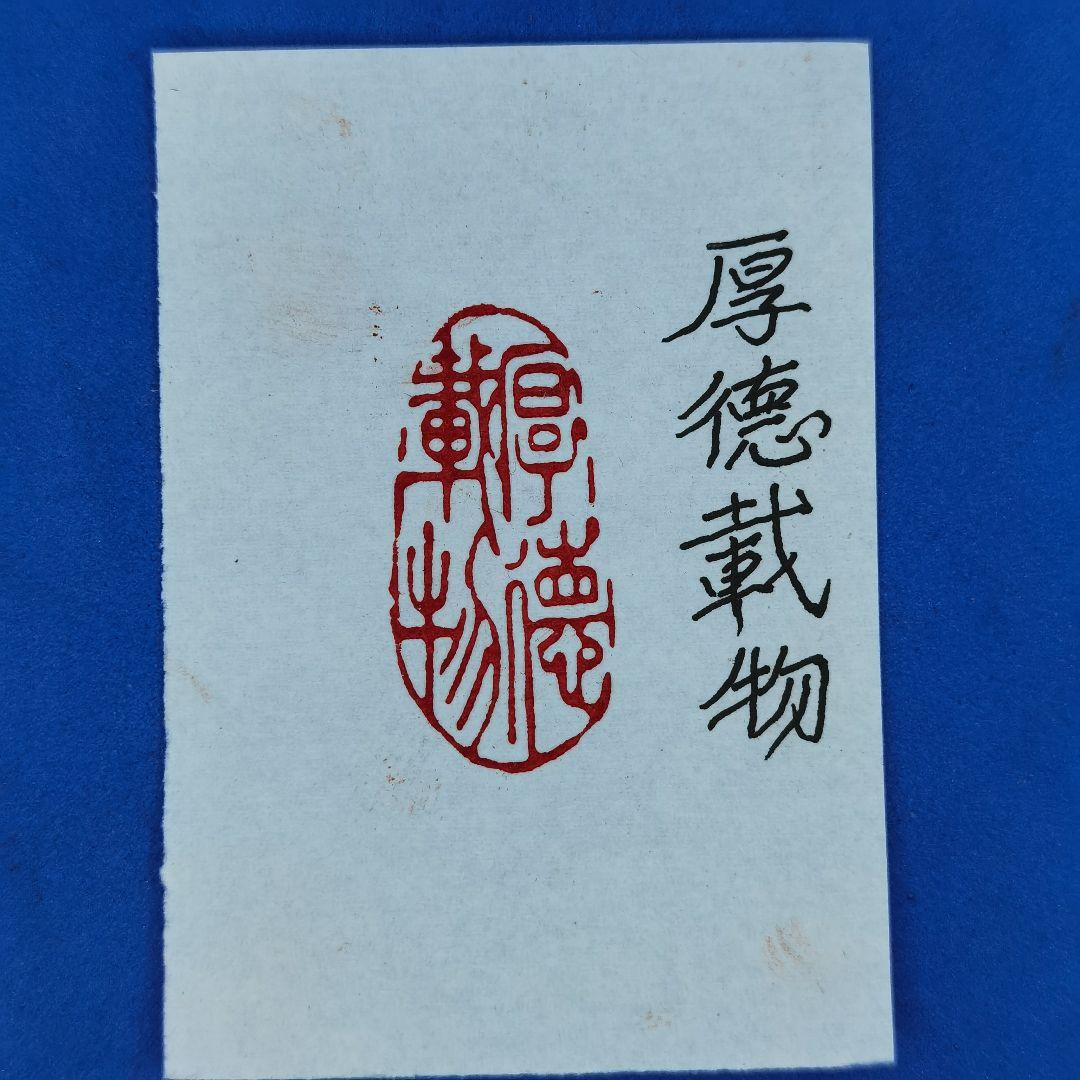 厚德載物
厚德
載物